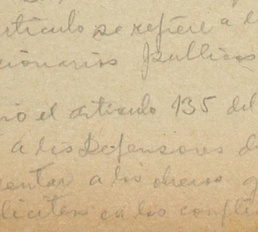 artículo se refiere a l
cionarios publicos
ió el artículo 135 del
a los Defensores d
entar a los obreros q
liciten en los conflic